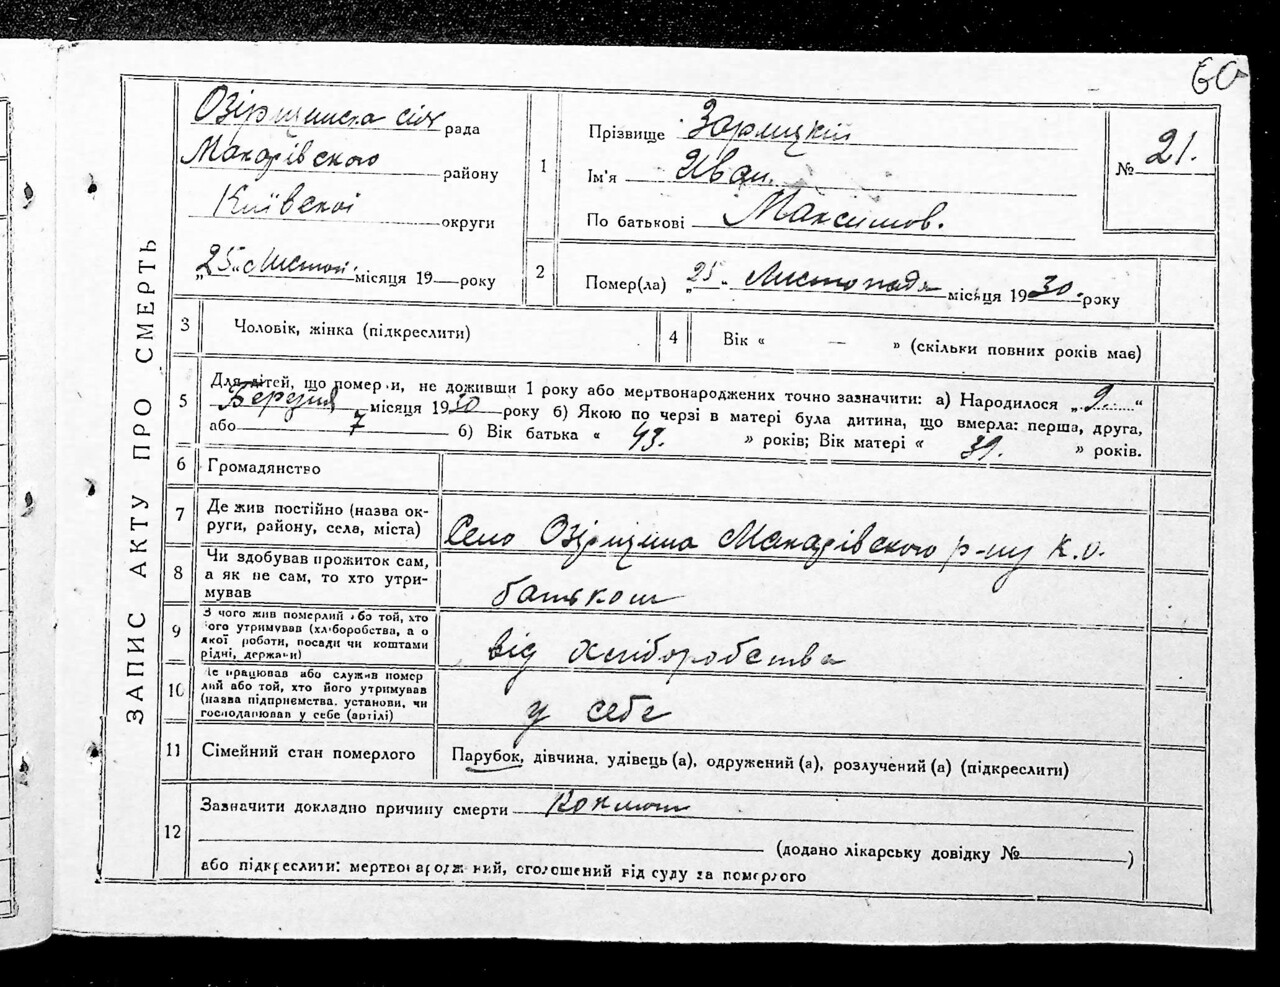 60
Озірщинська сіл рада
Макарівського району
Київської округи
„25“ Листоп. місяця 19 року
1
Прізвище Зарицкій
Ім'я Иван.
По батькові Максимов.
№ 21.
2
Помер(ла) „25“ Листопада місяця 1930. року
ЗАПИС АКТУ ПРО СМЕРТЬ
3 Чоловік, жінка (підкреслити)
4 Вік « — » (скільки повних років має)
5
Для дітей, що померли, не доживши 1 року або мертвонароджених точно зазначити: а) Народилося „9“
Березня місяця 1930 року б) Якою по черзі в матері була дитина, що вмерла: перша, друга,
або 7 б) Вік батька « 43. » років; Вік матері « 39. » років.
6 Громадянство
7 Де жив постійно (назва ок-
руги, району, села, міста)
Село Озірщина Макарівського р-ну К.О.
8 Чи здобував прожиток сам,
а як не сам, то хто утри-
мував
батьком
9 З чого жив померлий або той, хто
його утримував (хліборобства, а о
якої роботи, посади чи коштами
рідні, держави)
від хліборобства
10 Де працював або служив помер
лий або той, хто його утримував
(назва підприємства, установи, чи
господарював у себе (артілі)
у себе
11 Сімейний стан померлого
Парубок, дівчина, удівець (а), одружений (а), розлучений (а) (підкреслити)
12
Зазначити докладно причину смерти
(додано лікарську довідку № )
або підкреслити: мертвонароджений, оголошений від суду за померлого